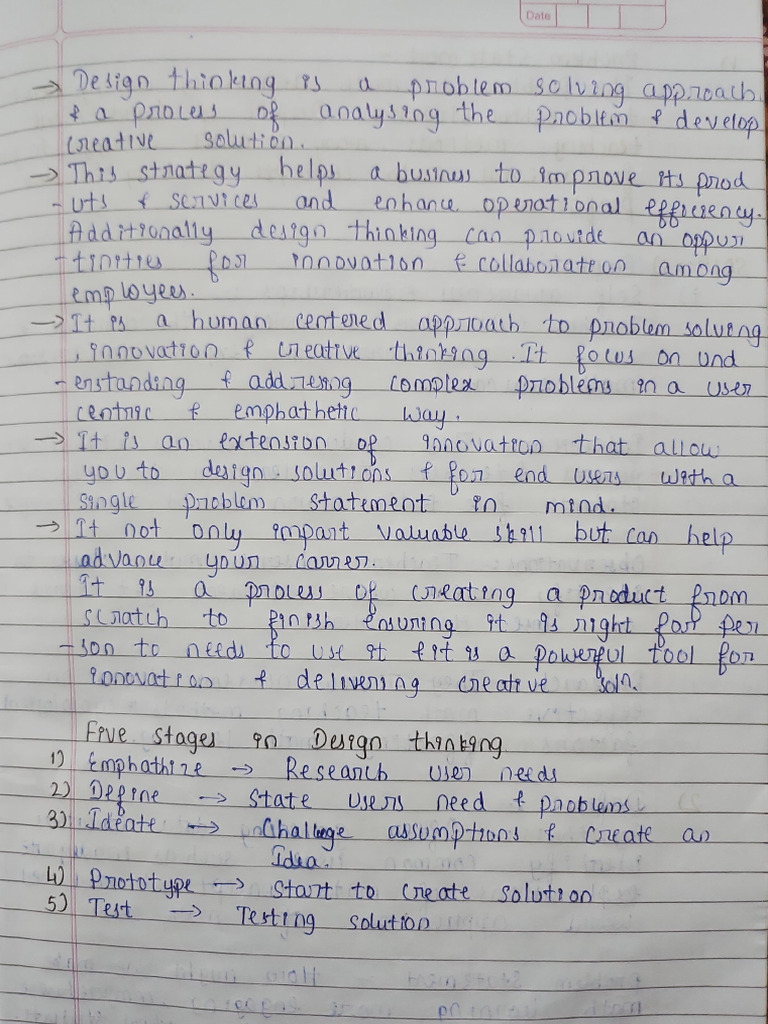 Date
→ Design thinking is a problem solving approach
& a process of analysing the problem & develop
creative solution.
→ This strategy helps a business to improve its prod
- uts & services and enhance operational efficiency.
Additionally design thinking can provide an oppur
- tinities for innovation & collaboration among
employees.
→ It is a human centered approach to problem solving
, innovation & creative thinking. It focus on und
- erstanding & addressing complex problems in a user
centric & emphathetic way.
→ It is an extension of innovation that allow
you to design solutions & for end users with a
single problem statement in mind.
→ It not only impart valuable skill but can help
advance your carrer.
It is a process of creating a product from
scratch to finish ensuring it is right for per
- son to needs to use it & it is a powerful tool for
innovation & delivering creative soln.
Five stages in Design thinking
1) Emphathize → Research user needs
2) Define → State users need & problems
3) Ideate → Challenge assumptions & create an
Idea.
4) Prototype → Start to create solution
5) Test → Testing solution